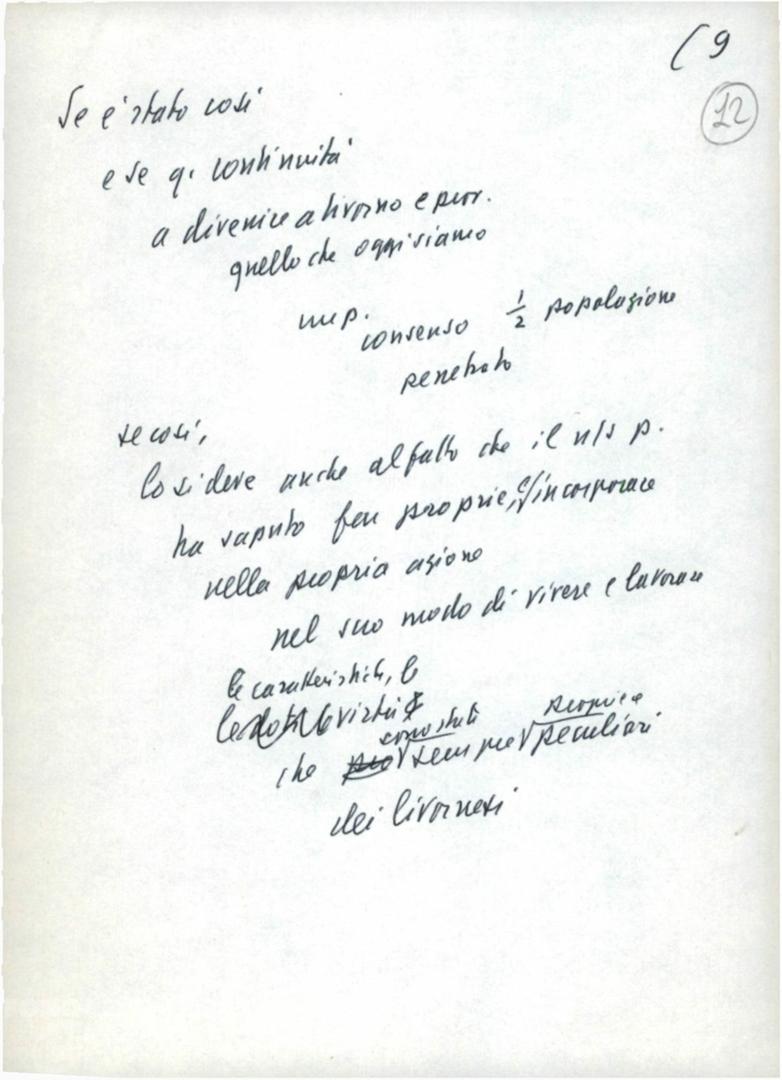 ( 9
12
Se e' stato così
e se q. continuità
a divenire a livorno e prov.
quello che oggi siamo
un p.
consenso 1/2 popolazione
penetrato
se così,
lo si deve anche al fatto che il n/s p.
ha saputo fare proprie, e incorporare
nella propria azione
nel suo modo di vivere e lavorare
le caratteristiche, le
le doti le virtù
sono state proprie
che sempre peculiari
dei livornesi